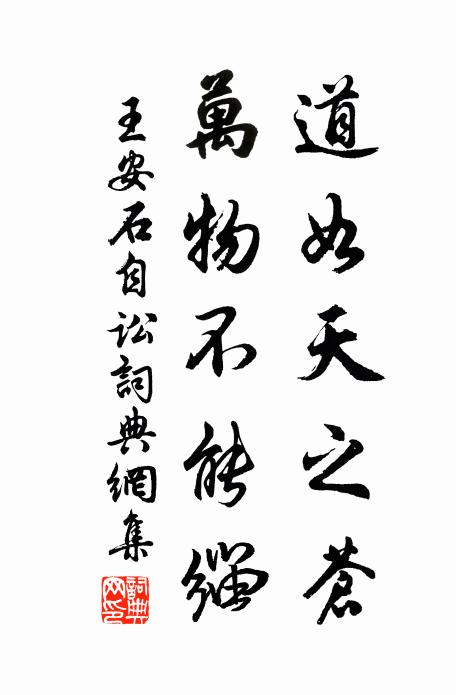 道如天之蒼
萬物不能緇
王安石自訟詞典網集
詞典
网印